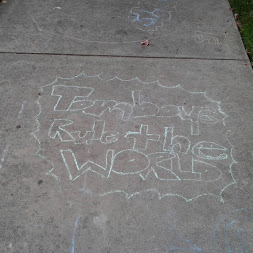 Tomboys
Rule the
WORLD